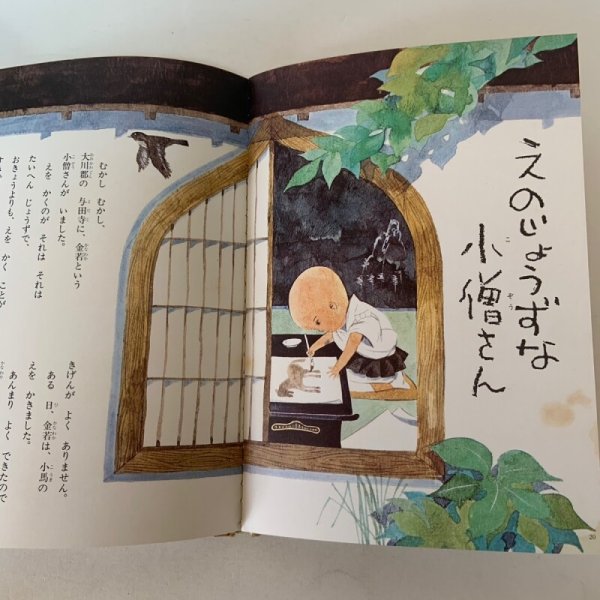 えのじょうずな
小僧さん
こ ぞう
むかし むかし、
大川郡の 与田寺に、金若という
小僧さんが いました。
えを かくのが それは それは
たいへん じょうずで、
おきょうよりも、えを かく ことが
きげんが よく ありません。
ある 日、金若は、小馬の
えを かきました。
あんまり よく できたので
20